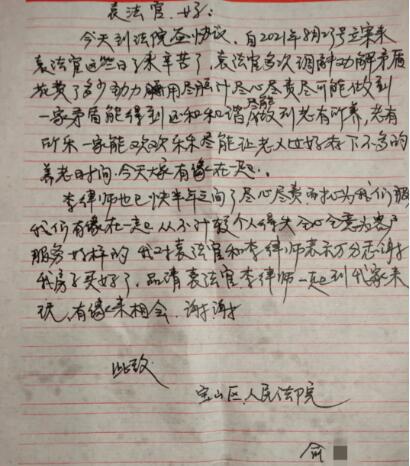 袁法官.好:
今天到法院签协议、自2021年8月27号立案来
袁法官这些日子来辛苦了,袁法官多次调解功解矛盾
花费了多少动力 用尽脑汁尽心尽责尽可能做到
一家矛盾能得到还和和谐尽能做到老有所养,老有
所乐一家能欢欢乐乐尽能让老人过好存下不多的
养老时间.今天大家有缘在一起.
李律师也已快半年之间了尽心尽责而为我们服
我们有缘在一起从不计较个人得失全心全意为客户
服务好样的 我对袁法官和李律师表示万分感谢
我房子买好了,品请袁法官李律师一起到我家来
玩,有缘来相会.谢谢
此致
宝山区人民法院
俞